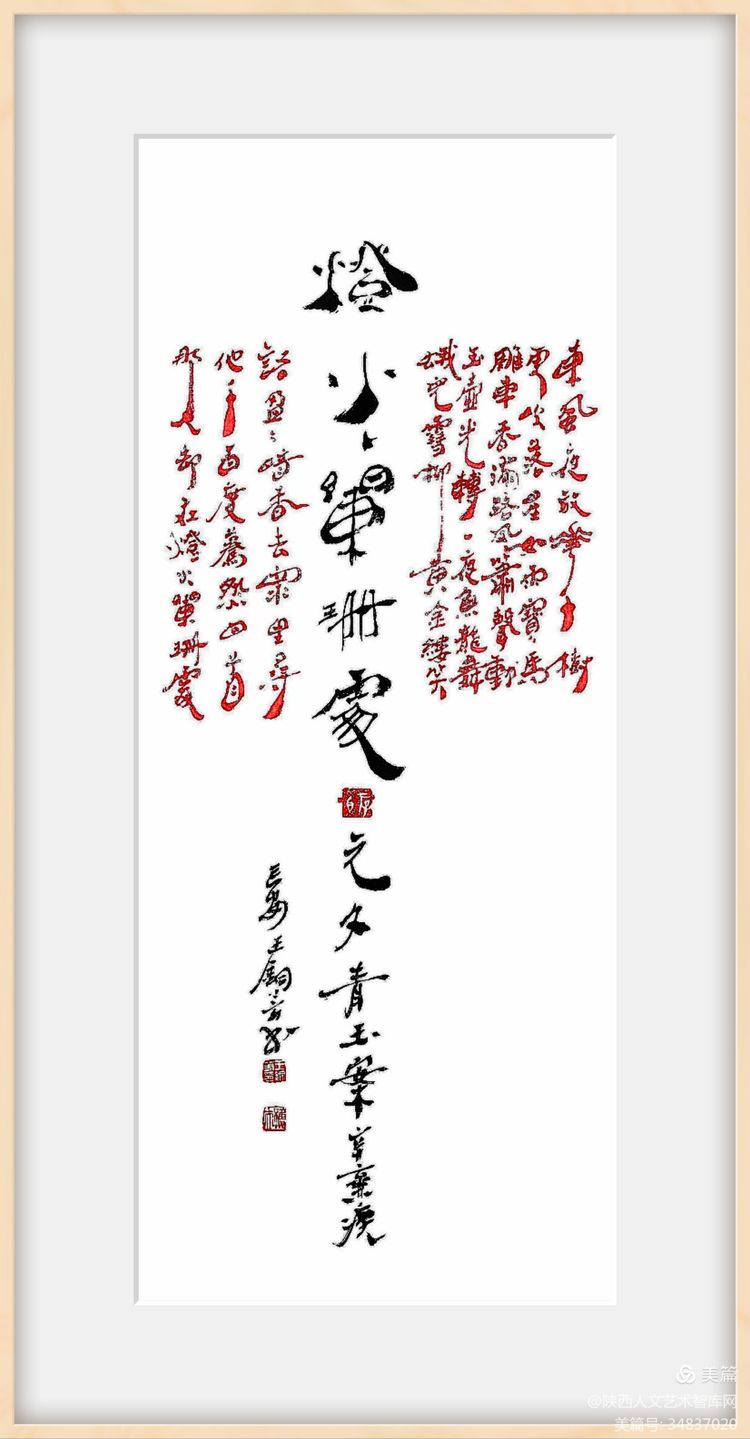 燈火闌珊處
元夕青玉案辛棄疾
東風夜放華千樹
更吹落星如雨寶馬
雕車香滿路鳳簫聲動
玉壺光轉一夜魚龍舞
蛾兒雪柳黃金縷笑
語盈盈暗香去眾里尋
他千百度驀然回首
那人却在燈火闌珊處
長安王銅書
美篇
@陕西人文艺术智库网
美篇号: 34837020